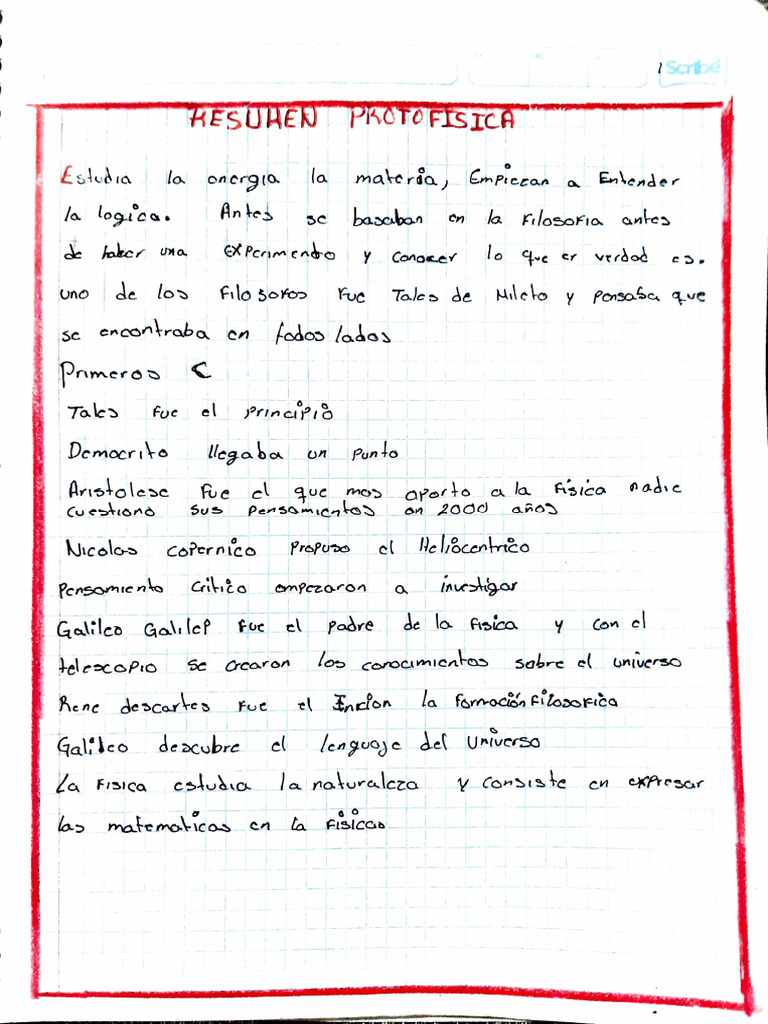 1 Scribe
RESUMEN PROTOFISICA
Estudia la energia la materia, Empiezan a Entender
la logica. Antes se basaban en la Filosofia antes
de haber una experimento y conocer lo que er verdad es.
uno de los filosofos fue Tales de Mileto y pensaba que
se encontraba en todos lados
Primeros <
Tales fue el principio
Democrito llegaba un punto
Aristolese fue el que mas aporto a la Fisica nadie
cuestiono sus pensamientos en 2000 años
Nicolas copernico propuso el Heliocentrico
pensamiento critico empezaron a investigar
Galileo Galilep fue el padre de la fisica y con el
telescopio se crearon los conocimientos sobre el universo
Rene descartes fue el la formación filosofica
Galileo descubre el lenguaje del universo
La fisica estudia la naturaleza y consiste en expresar
las matematicas en la fisica